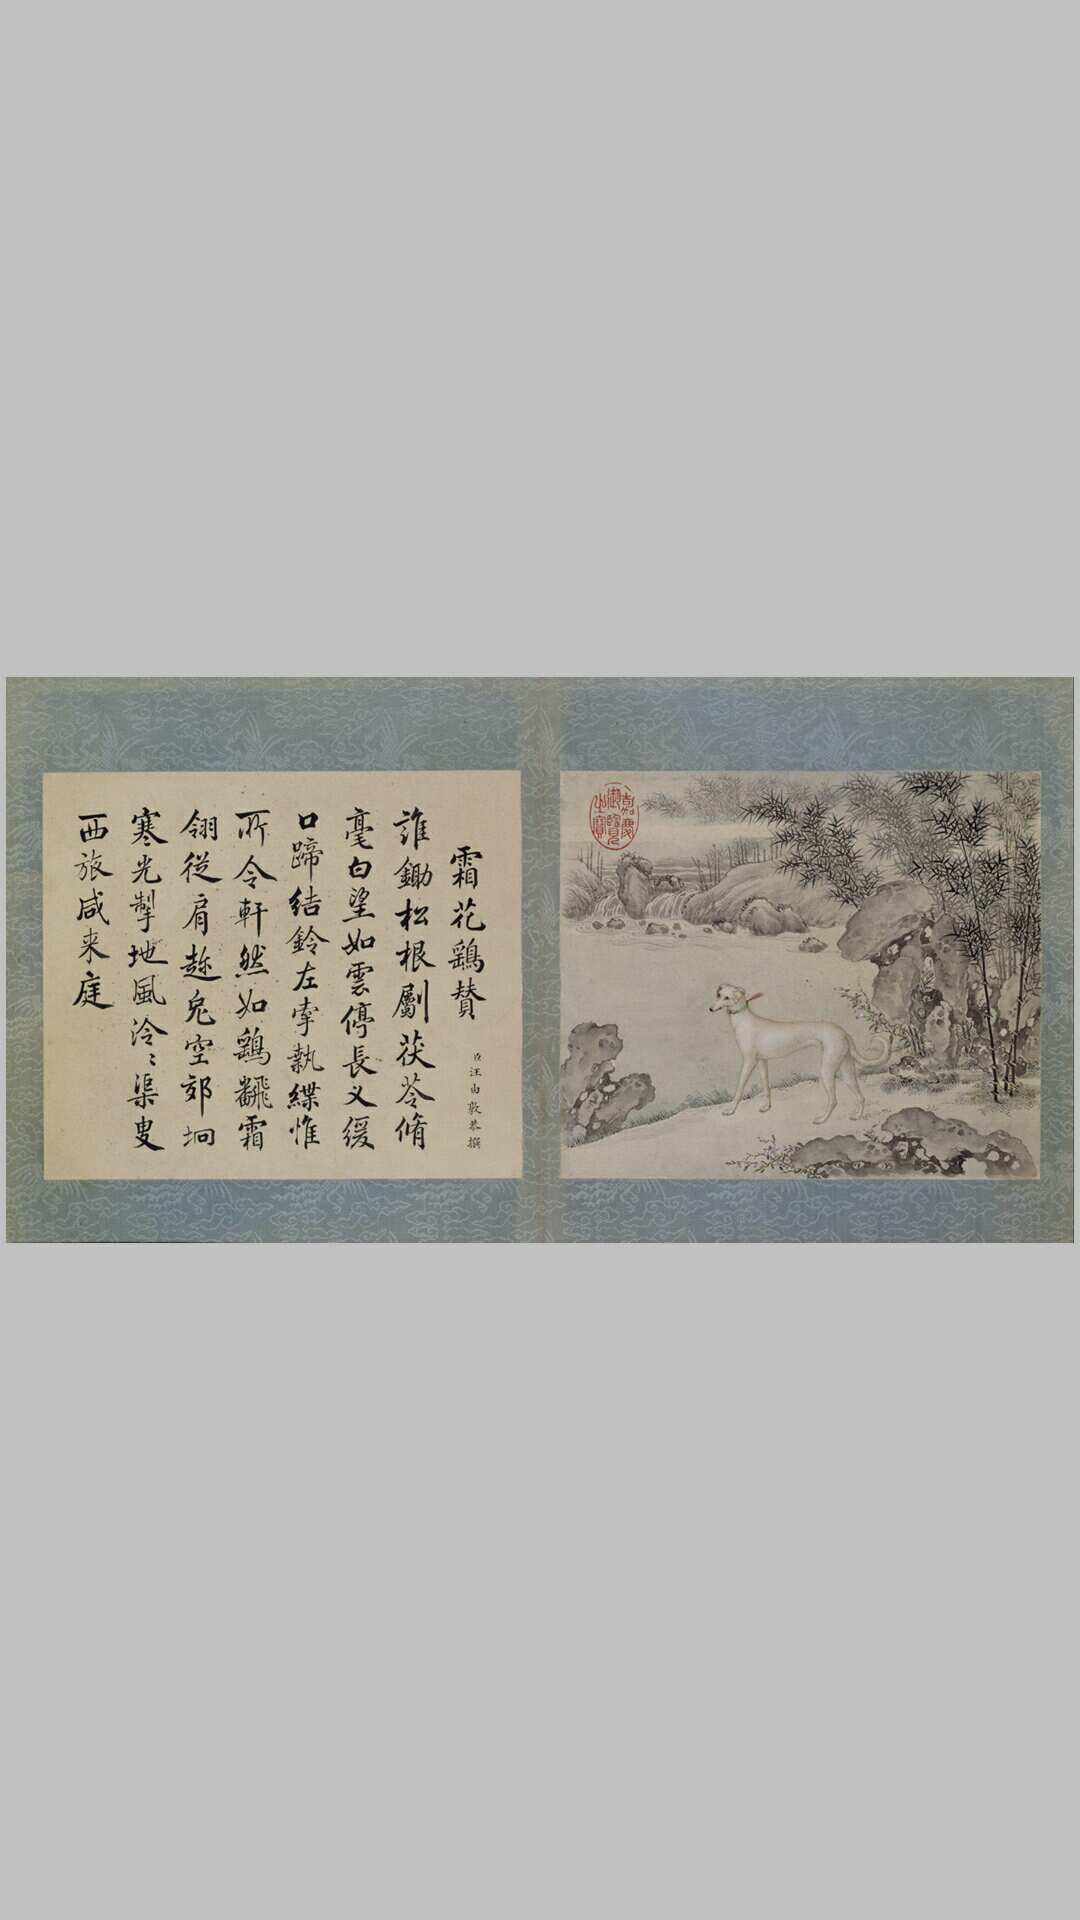 霜花鷂贊
臣汪由敦恭撰
誰鋤松根劚茯苓脩
毫白望如雲停長义緩
口蹄結鈴左牽執緤惟
所令軒然如鷂翻霜
翎從肩趂兔空郊坰
寒光掣地風泠〻渠叟
西旅咸来庭
嘉慶
御覽
之寶